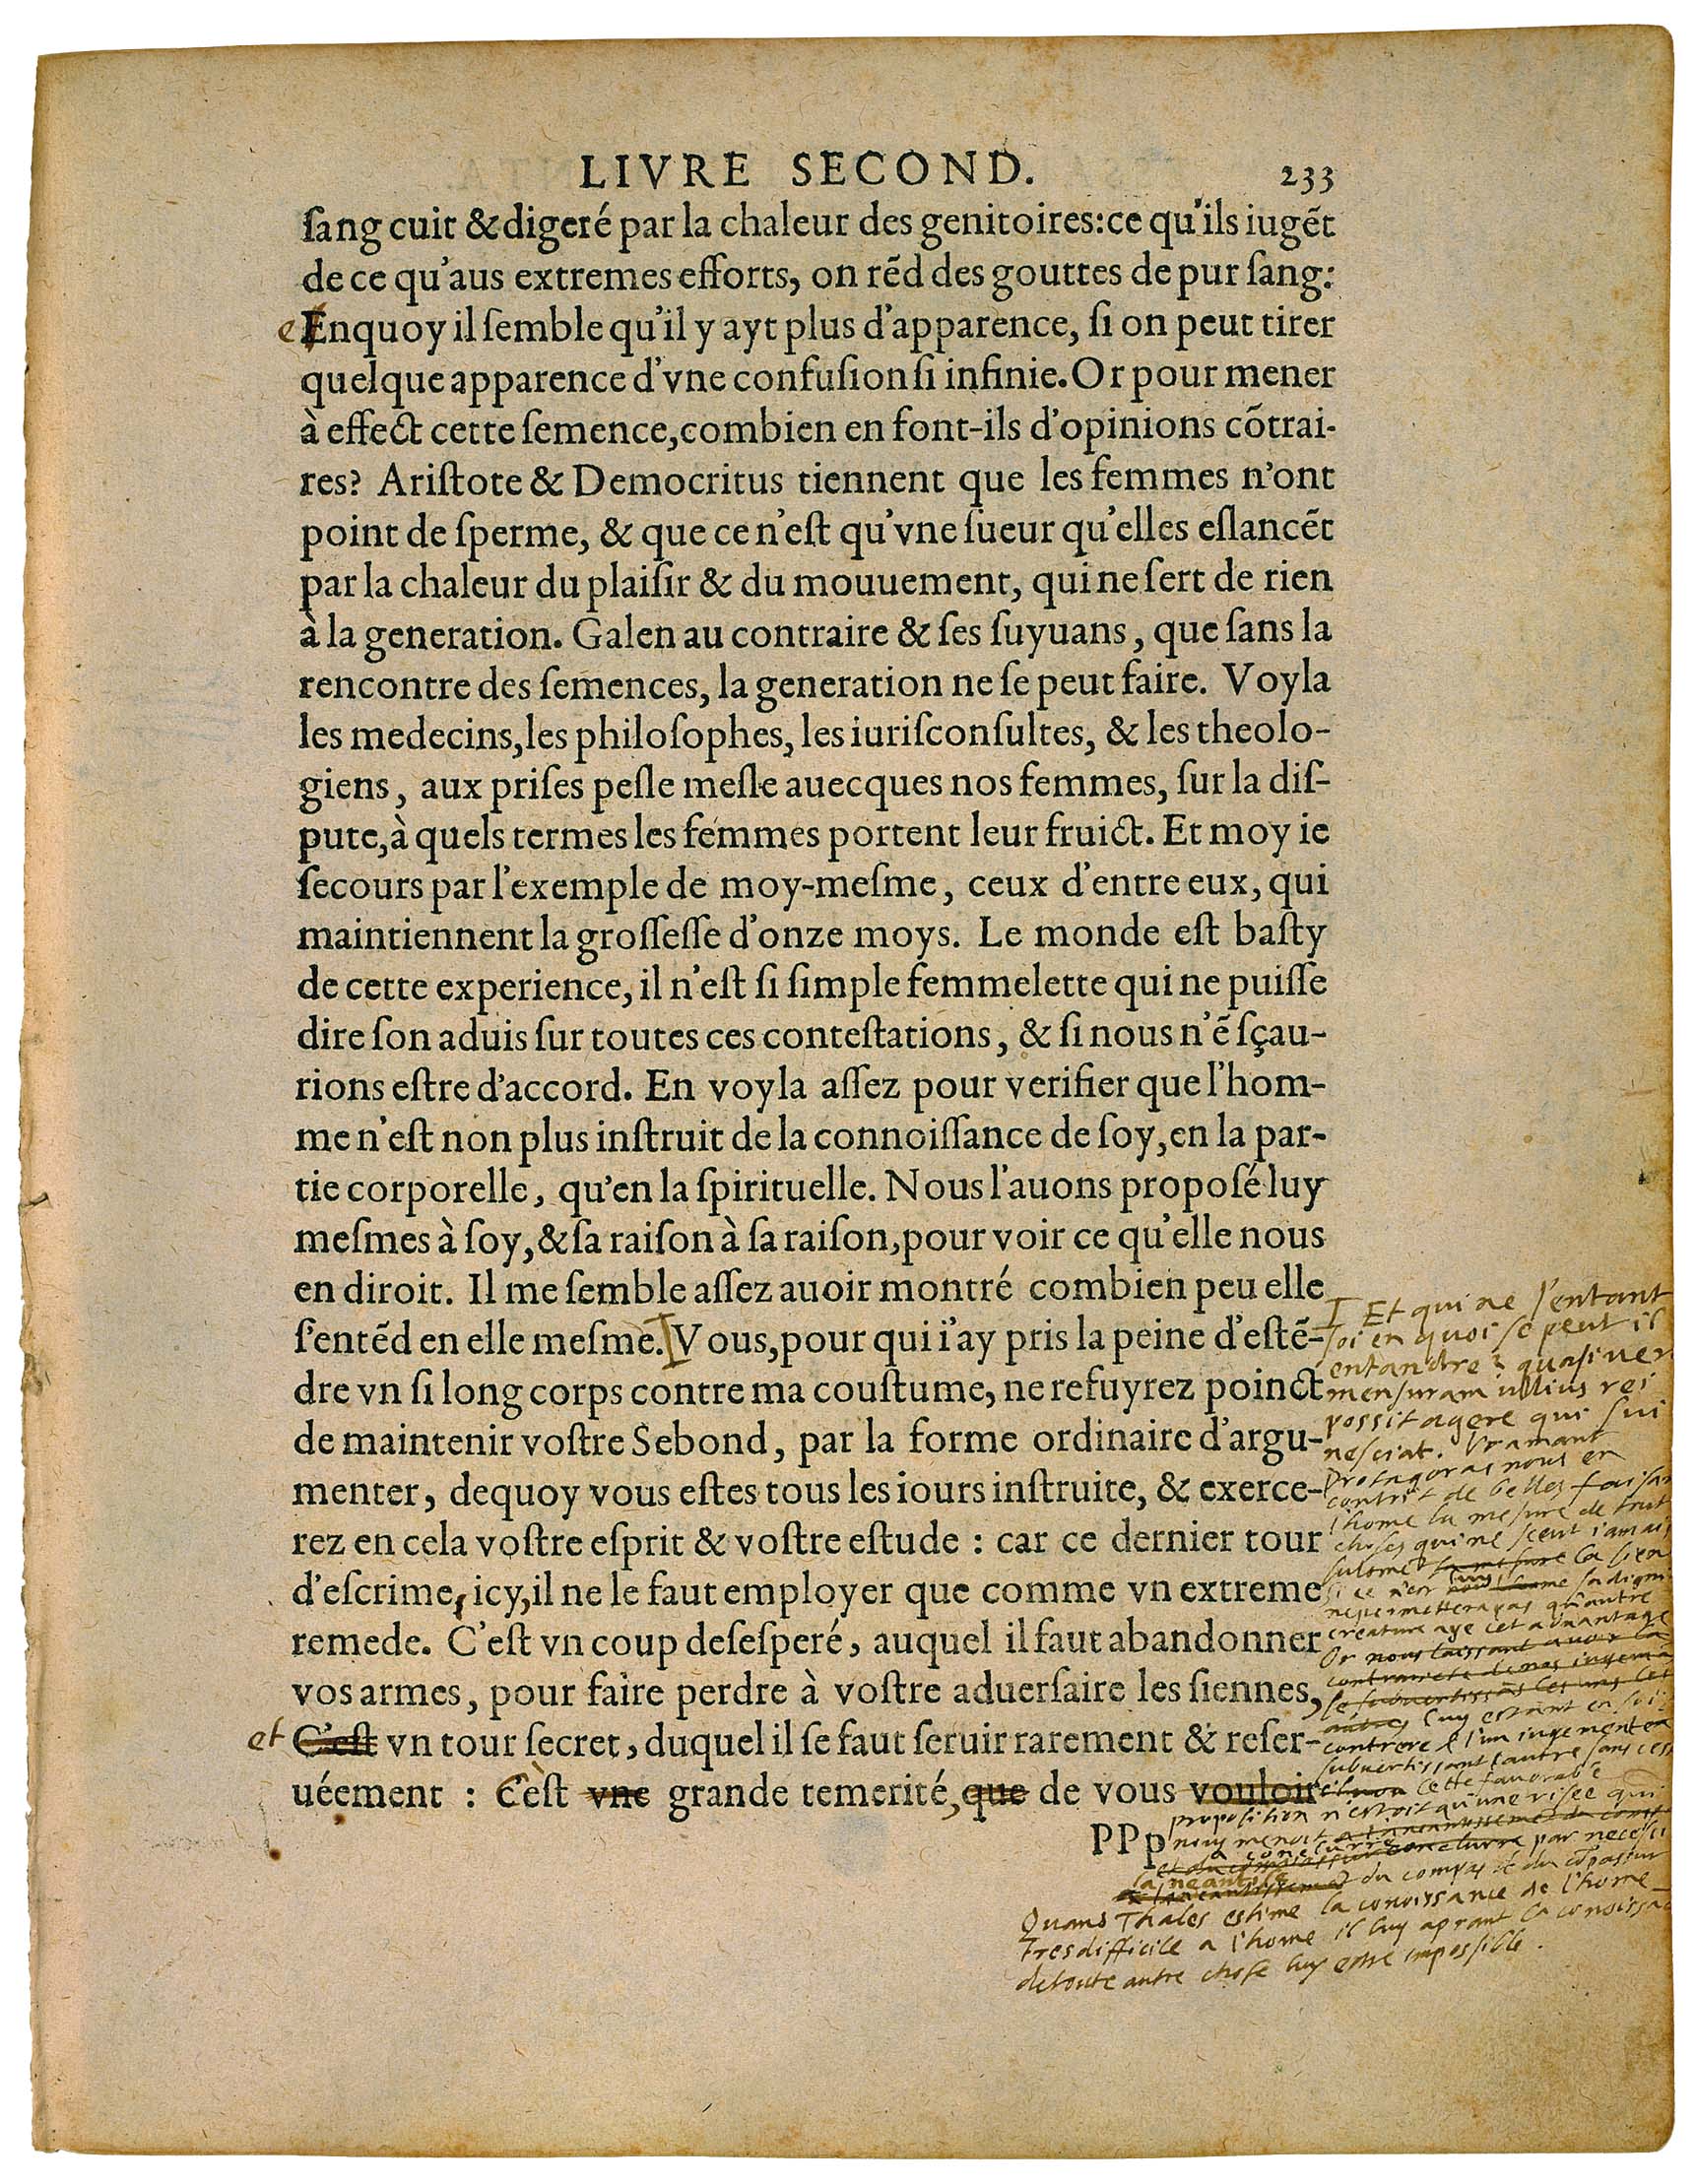 LIVRE SECOND. 233
ſang cuit & digeré par la chaleur des genitoires: ce qu'ils iugẽt
de ce qu'aus extremes efforts, on rẽd des gouttes de pur ſang:
e Enquoy il ſemble qu'il y ayt plus d'apparence, ſi on peut tirer
quelque apparence d'vne confuſion ſi infinie. Or pour mener
à effect cette ſemence, combien en font-ils d'opinions cõtrai-
res? Ariſtote & Democritus tiennent que les femmes n'ont
point de ſperme, & que ce n'eſt qu'vne ſueur qu'elles eſlancẽt
par la chaleur du plaiſir & du mouuement, qui ne ſert de rien
à la generation. Galen au contraire & ſes ſuyuans, que ſans la
rencontre des ſemences, la generation ne ſe peut faire. Voyla
les medecins, les philoſophes, les iuriſconſultes, & les theolo-
giens, aux priſes peſle meſle auecques nos femmes, ſur la diſ-
pute, à quels termes les femmes portent leur fruict. Et moy ie
ſecours par l'exemple de moy-meſme, ceux d'entre eux, qui
maintiennent la groſſeſſe d'onze moys. Le monde eſt baſty
de cette experience, il n'eſt ſi ſimple femmelette qui ne puiſſe
dire ſon aduis ſur toutes ces conteſtations, & ſi nous n'ẽ ſçau-
rions eſtre d'accord. En voyla aſſez pour verifier que l'hom-
me n'eſt non plus inſtruit de la connoiſſance de ſoy, en la par-
tie corporelle, qu'en la ſpirituelle. Nous l'auons propoſé luy
meſmes à ſoy, & ſa raiſon à ſa raiſon, pour voir ce qu'elle nous
en diroit. Il me ſemble aſſez auoir montré combien peu elle
ſ'entẽd en elle meſme. Vous, pour qui i'ay pris la peine d'eſtẽ-
dre vn ſi long corps contre ma couſtume, ne refuyrez poinct
de maintenir voſtre Sebond, par la forme ordinaire d'argu-
menter, dequoy vous eſtes tous les iours inſtruite, & exerce-
rez en cela voſtre eſprit & voſtre eſtude : car ce dernier tour
d'eſcrime, icy, il ne le faut employer que comme vn extreme
remede. C'eſt vn coup deſeſperé, auquel il faut abandonner
vos armes, pour faire perdre à voſtre aduerſaire les ſiennes,
et C'eſt vn tour ſecret, duquel il ſe faut ſeruir rarement & reſer-
uéement : C'eſt vne grande temerité, que de vous vouloir
PPp
Et qui ne s'entant
soi en quoi se peut il
entandre? quasi ver
mensuram ullius rei
possit agere qui sui
nesciat. Vramant
Protagoras nous en
contoit de belles faisan
l'home la mesure de tout
choses qui ne sceut iamais
sulemt la sien
si ce n'est luy sa digni
ne permettera pas qu'autre
creature aye cet avantage
Or nous laissant avoir la
contrarieté de nos iugema
se subvertissās les uns les
autres luy estant en soi
contrere & l'un iugement en
subvertissant l'autre sans cess
cette favorable
proposition n'estoit qu'une risee qui
nous menoit
a conclurre par necessi
la neantise du compas & du cōpassur
Quand Thales estime la conoissance de l'home
tresdifficile a l'home il luy aprant la conoissac
de toute autre chose luy estre impossible.